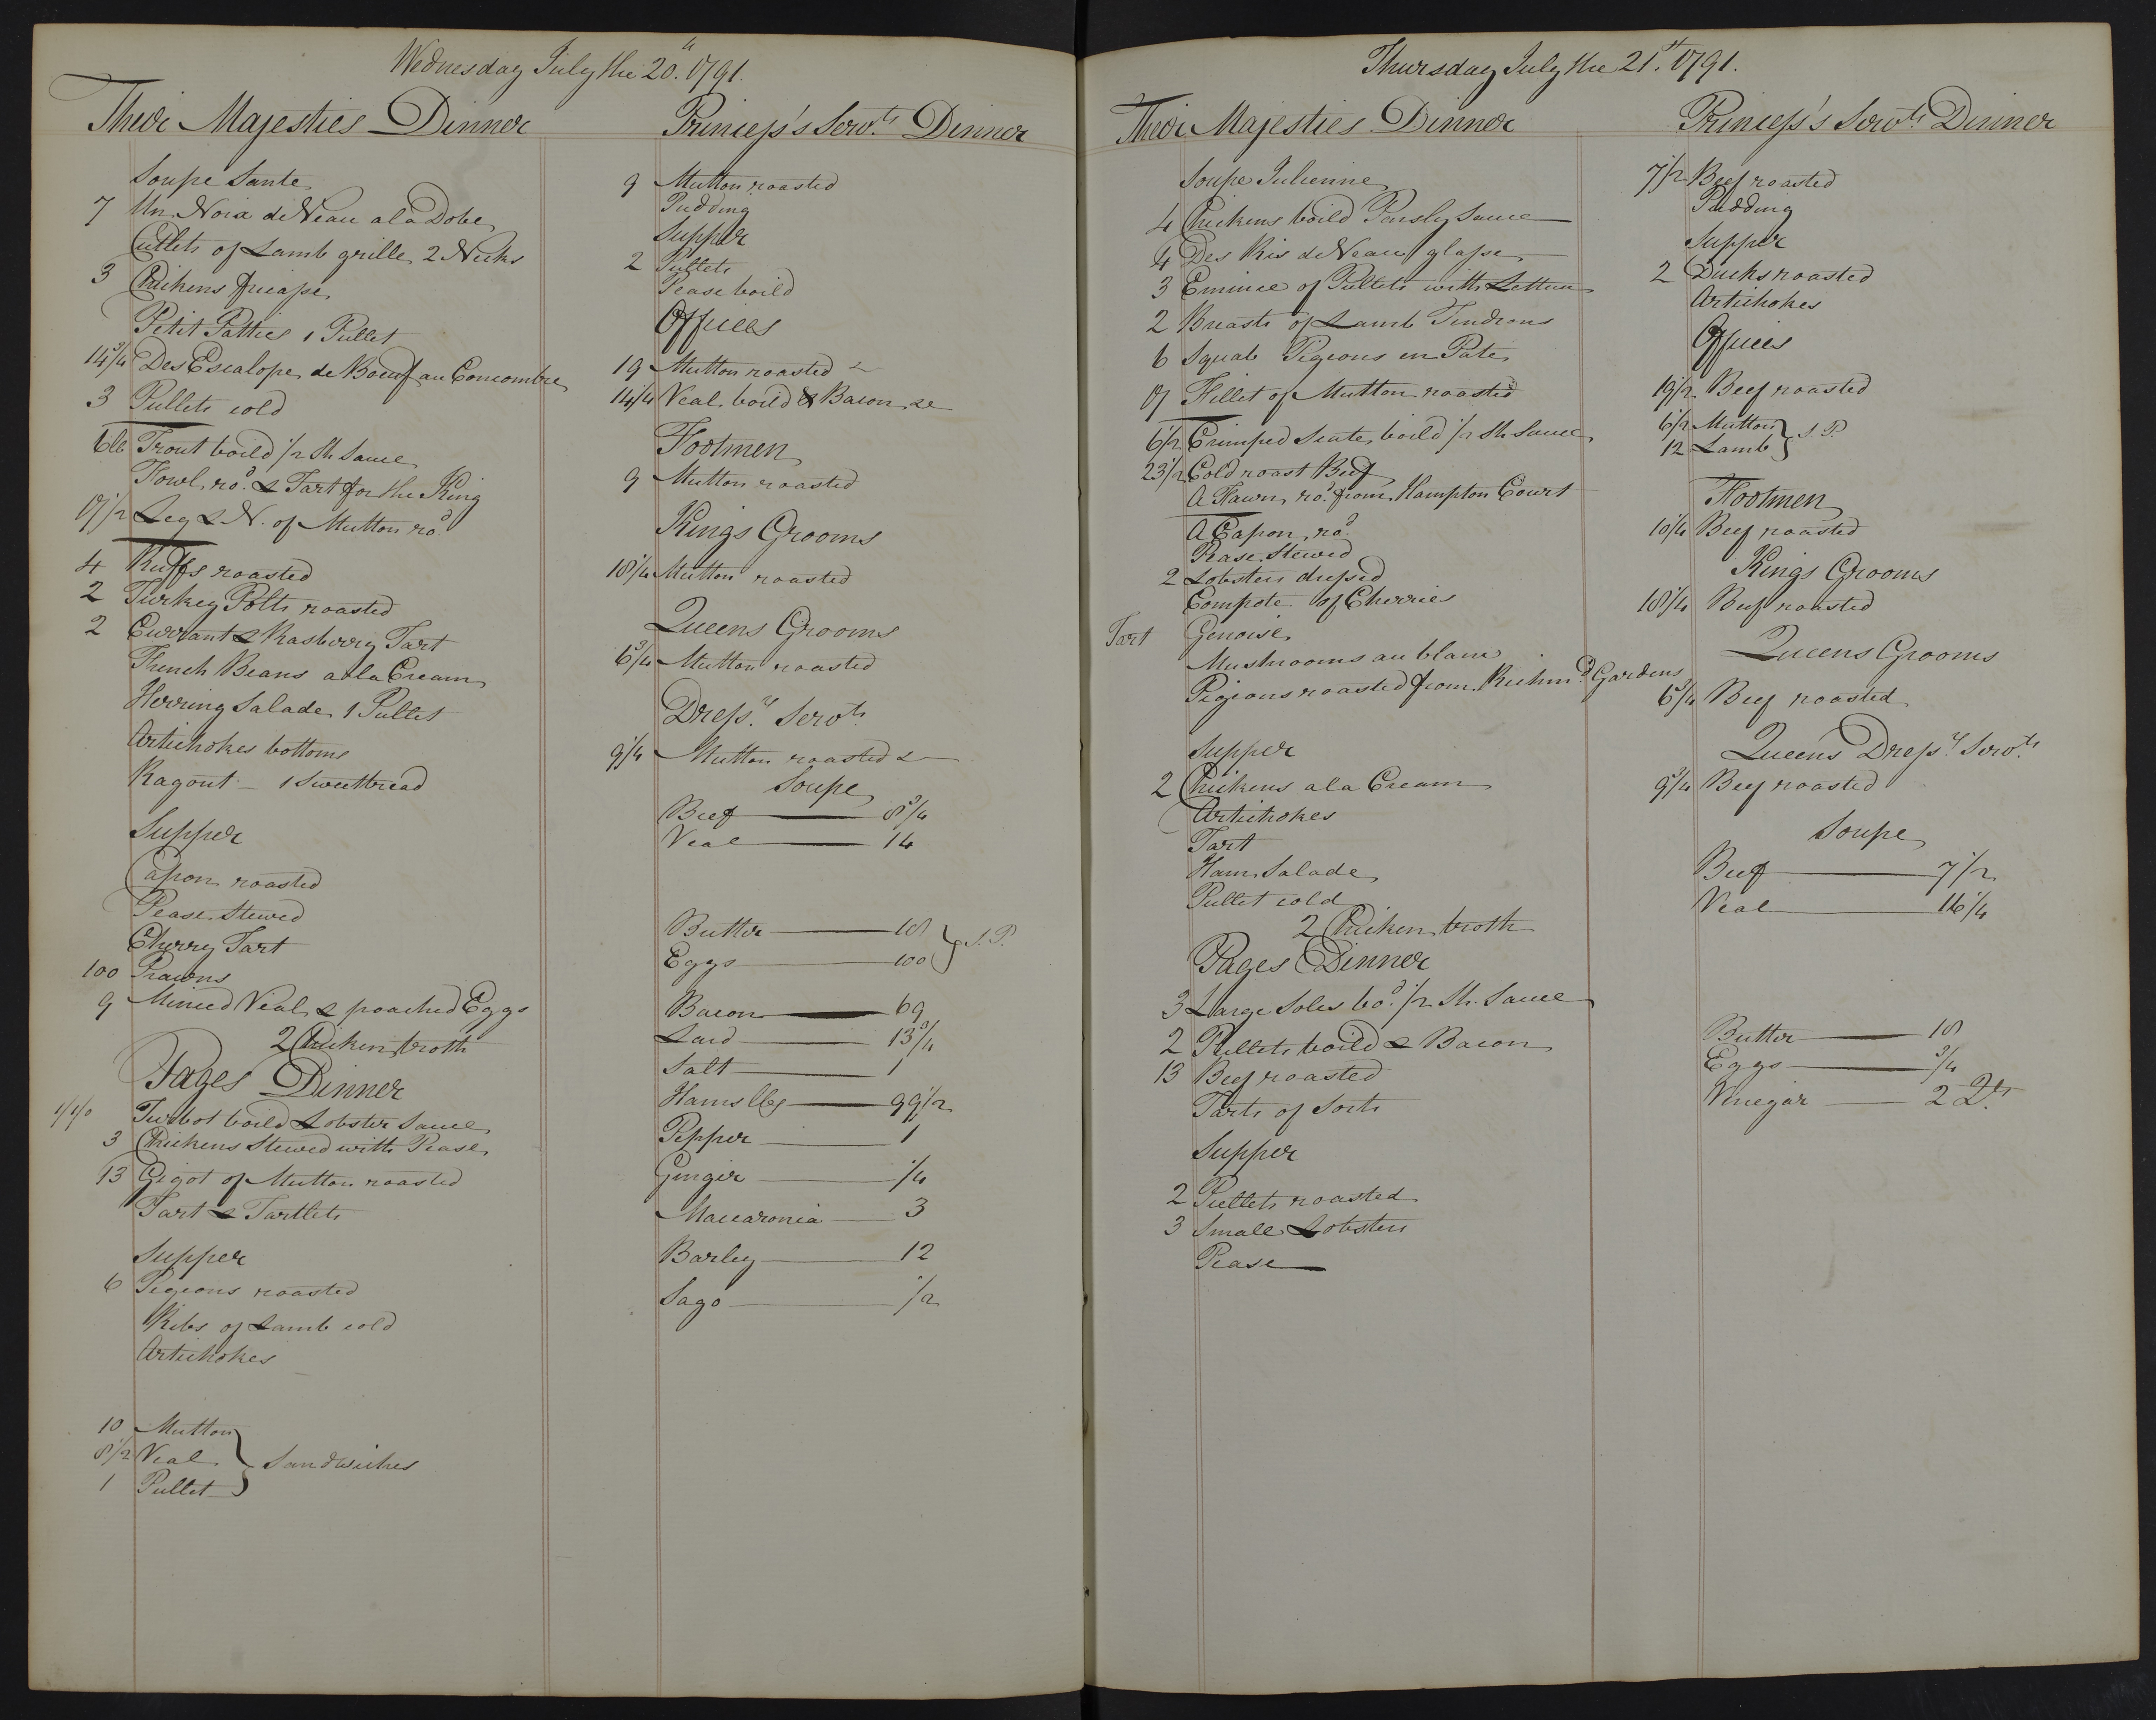 Wednesday July the 20.th 1791.
Their Majesties Dinner
Soupe Sante
7 Un Noix de Veau a la Dobe
Cutlets of Lamb grille 2 Necks
3 Chickens fricasse
Petit Patties 1 Pullet
14 3/4 Des Escalope de Boeuf au Concombre
3 Pullets cold
6 lb Trout boild 1/2 Sh. Sauce
Fowl ro.d & Tart for the King
17 1/2 Leg & N. of Mutton ro.d
4 Ruffs roasted
2 Turkey Polts roasted
2 Currant & Rasberry Tart
French Beans a la Cream
Herring Salade 1 Pullet
Artichokes bottoms
Ragout - 1 Sweetbread
Supper
Capon roasted
Pease Stewed
Cherry Tart
100 Prawns
9 Minced Veal & poached Eggs
2 Chicken broth
Pages Dinner
1/1/0 Turbot boild Lobster Sauce
3 Chickens Stewed with Pease
13 Gigot of Mutton roasted
Tart & Tartlets
Supper
6 Pigeons roasted
Ribs of Lamb cold
Artichokes
10 Mutton
8 1/2 Veal } Sandwiches
1 Pullet
Princess's Serv.ts Dinner
9 Mutton roasted
Pudding
Supper
2 Pullets
Pease boild
Offices
19 Mutton roasted
14 1/4 Veal boild & Bacon
Footmen
9 Mutton roasted
Kings Grooms
18 1/4 Mutton roasted
Queens Grooms
6 3/4 Mutton roasted
Dress.rs Serv.ts
9 1/4 Mutton roasted
Soupe
Beef 8 3/4
Veal 14
Butter 18
Eggs 100 } S. P.
Bacon 69
Lard 13 3/4
Salt 1
Hams lbs 99 1/2
Pepper 1
Ginger 1/4
Macaronia 3
Barley 12
Sago 1/2
Thursday July the 21.st 1791.
Their Majesties Dinner
Soupe Julienne
4 Chickens boild Parsly Sauce
4 Des Ris de Veau glasse
3 Emince of Pullets with Lettuce
2 Breasts of Lamb Tendrons
6 Squab Pigeons en Pate
17 Fillet of Mutton roasted
6 1/2 Crimped Scate boild 1/2 Sh. Sauce
23 1/2 Cold roast Beef
A Fawn ro.d from Hampton Court
A Capon ro.d
Pease Stewed
2 Lobsters dressed
Compote of Cherries
Tart Genoise
Mushrooms au blanc
Pigeons roasted from Richm.d Gardens
Supper
2 Chickens a la Cream
Artichokes
Tart
Ham Salade
Pullet cold
2 Chicken broth
Pages Dinner
3 Large Soles bo.d 1/2 Sh. Sauce
2 Pullets boild & Bacon
13 Beef roasted
Tarts of Sorts
Supper
2 Pullets roasted
3 Small Lobsters
Pease
Princess's Serv.ts Dinner
7 1/2 Beef roasted
Pudding
Supper
2 Ducks roasted
Artichokes
Offices
19 1/2 Beef roasted
6 1/2 Mutton
12 Lamb } S. P.
Footmen
10 1/4 Beef roasted
Kings Grooms
18 1/4 Beef roasted
Queens Grooms
6 3/4 Beef roasted
Queen's Dress.rs Serv.ts
9 3/4 Beef roasted
Soupe
Beef 7 1/2
Veal 16 1/4
Butter 18
Eggs 3/4
Vinegar 2 Q.ts